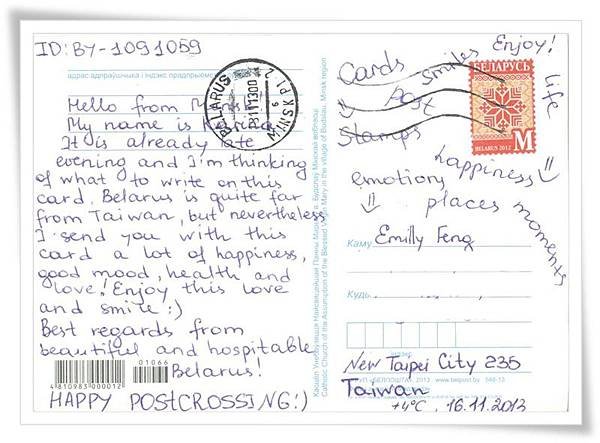 ID: BY-1091059
адрас адпраўшчыка і індэкс прадпрыем
Hello from M
My name is
It is already late
evening and I'm thinking
of what to write on this
card. Belarus is quite far
from Taiwan, but nevertheless
I send you with this
card a lot of happiness,
good mood, health and
love! Enjoy this love
and smile :)
Best regards from
beautiful and hospitable
Belarus!
HAPPY POSTCROSSING!)
01066
4810983000012
BELARUS
MINSK
Касцёл Унебаўзяцця Найсвяцейшай Панны Марыі в. Будслаў Мінскай вобласці
Catholic Church of the Assumption of the Blessed Virgin Mary in the village of Budslau, Minsk region
Enjoy!
Smiles
Cards
Post
Stamps
Life
happiness
emotions
places
moments
БЕЛАРУСЬ
BELARUS 2012
M
Каму
Emilly Feng
Куды
індэкс
New Taipei City 235
2013 www.belpost.by
Taiwan
+4°C, 16.11.2013